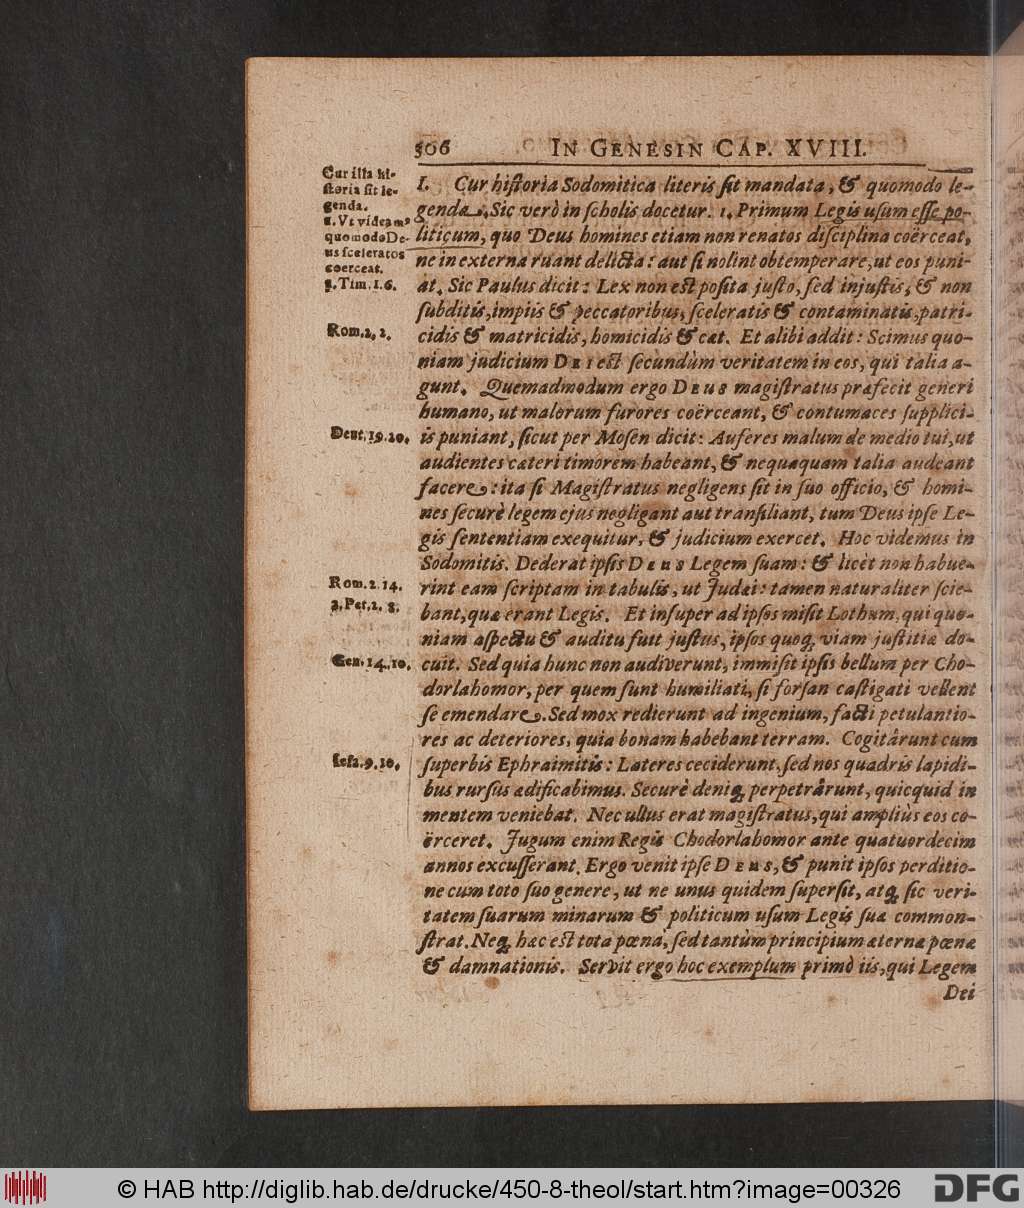 306
IN GENESIN CAP. XVIII.
Cur illa hi-
ſtoria ſit le-
genda.
1. Vt videamꝰ
quomodo De-
us ſceleratos
coerceat.
1. Tim. 1.6.
Rom. 2, 2.
Deut. 19. 20.
Rom. 2. 14.
2. Pet, 2. 8.
Gen. 14. 10.
Ieſa. 9. 10.
I. Cur hiſtoria Sodomitica literis ſit mandata, & quomodo le-
genda. Sic verò in ſcholis docetur. 1. Primum Legis uſum eſſe po-
liticum, quo Deus homines etiam non renatos diſciplina coërceat,
ne in externa ruant delicta: aut ſi nolint obtemperare, ut eos puni-
at. Sic Paulus dicit: Lex non eſt poſita juſto, ſed injuſtis, & non
ſubditis, impiis & peccatoribus, ſceleratis & contaminatis, patri-
cidis & matricidis, homicidis & cæt. Et alibi addit: Scimus quo-
niam judicium DEI eſt ſecundùm veritatem in eos, qui talia a-
gunt. Quemadmodum ergo DEUS magiſtratus præfecit generi
humano, ut malorum furores coërceant, & contumaces ſupplici-
is puniant, ſicut per Moſen dicit: Auferes malum de medio tui, ut
audientes cæteri timorem habeant, & nequaquam talia audeant
facere: ita ſi Magiſtratus negligens ſit in ſuo officio, & homi-
nes ſecurè legem ejus negligant aut tranſiliant, tum Deus ipſe Le-
gis ſententiam exequitur, & judicium exercet. Hoc videmus in
Sodomitis. Dederat ipſis DEUS Legem ſuam: & licèt non habue-
rint eam ſcriptam in tabulis, ut Judæi: tamen naturaliter ſcie-
bant, quæ erant Legis. Et inſuper ad ipſos miſit Lothum, qui quo-
niam aſpectu & auditu fuit juſtus, ipſos quoq; viam juſtitiæ do-
cuit. Sed quia hunc non audiverunt, immiſit ipſis bellum per Cho-
dorlahomor, per quem ſunt humiliati, ſi forſan caſtigati vellent
ſe emendare. Sed mox redierunt ad ingenium, facti petulantio-
res ac deteriores, quia bonam habebant terram. Cogitârunt cum
ſuperbis Ephraimitis: Lateres ceciderunt, ſed nos quadris lapidi-
bus rurſus ædificabimus. Securè deniq; perpetrârunt, quicquid in
mentem veniebat. Nec ullus erat magiſtratus, qui ampliùs eos co-
ërceret. Jugum enim Regis Chodorlahomor ante quatuordecim
annos excuſſerant. Ergo venit ipſe DEUS, & punit ipſos perditio-
ne cum toto ſuo genere, ut ne unus quidem ſuperſit, atq; ſic veri-
tatem ſuarum minarum & politicum uſum Legis ſuæ common-
ſtrat. Neq; hæc eſt tota pœna, ſed tantùm principium æternæ pœnæ
& damnationis. Servit ergo hoc exemplum primò iis, qui Legem
Dei
© HAB http://diglib.hab.de/drucke/450-8-theol/start.htm?image=00326
DFG